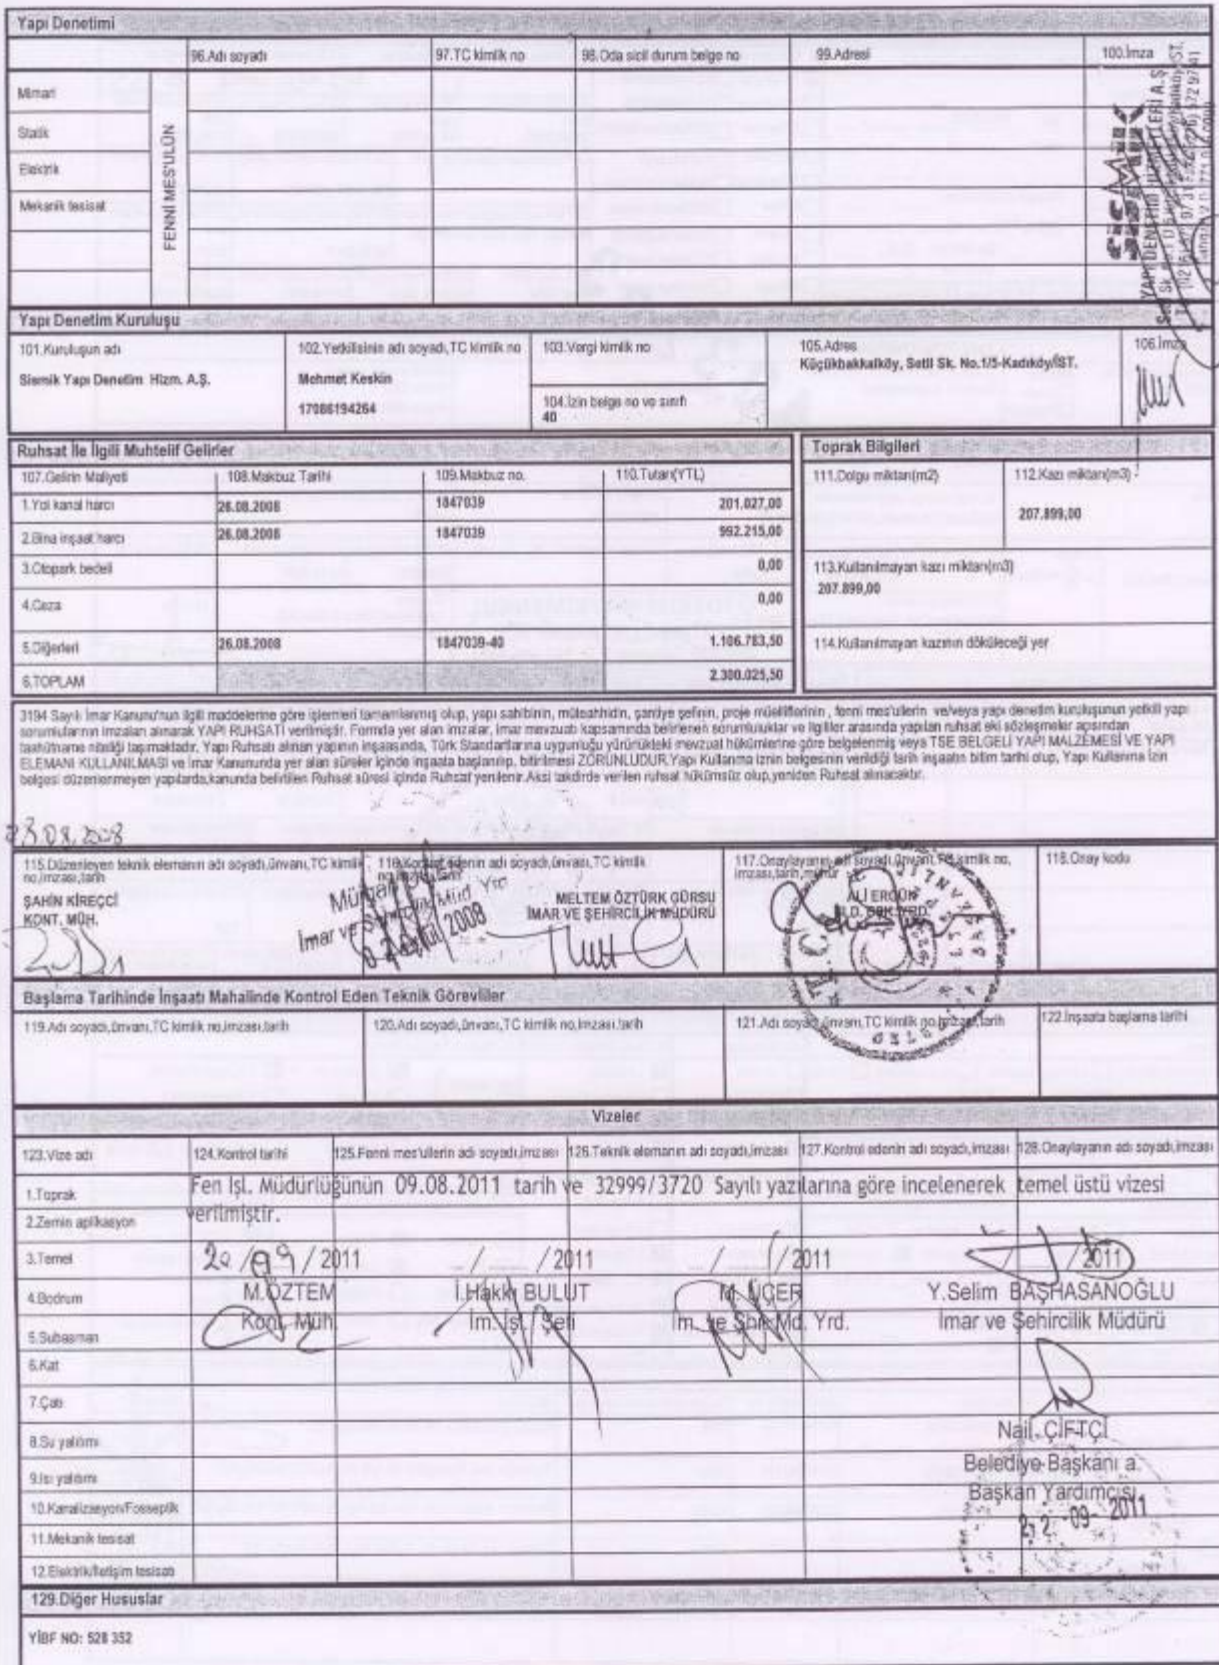 Yapı Denetimi
96.Adı soyadı 97.TC kimlik no 98.Oda sicil durum belge no 99.Adresi 100.İmza
FENNİ MES'ULÜN
Mimari
Statik
Elektrik
Mekanik tesisat
SİSMİK
YAPI DENETİM HİZMETLERİ A.Ş.
Yapı Denetim Kuruluşu
101.Kuruluşun adı 102.Yetkilisinin adı soyadı,TC kimlik no 103.Vergi kimlik no 105.Adres 106.İmza
Sismik Yapı Denetim Hizm. A.Ş. Mehmet Keskin Küçükbakkalköy, Setli Sk. No.1/5-Kadıköy/İST.
17086194264 104.İzin belge no ve sınıfı
40
Ruhsat İle İlgili Muhtelif Gelirler
107.Gelirin Maliyeti 108.Makbuz Tarihi 109.Makbuz no. 110.Tutarı(YTL)
1.Yol kanal harcı 26.08.2008 1847039 201.027,00
2.Bina inşaat harcı 26.08.2008 1847039 992.215,00
3.Otopark bedeli 0,00
4.Ceza 0,00
5.Diğerleri 26.08.2008 1847039-40 1.106.783,50
6.TOPLAM 2.300.025,50
Toprak Bilgileri
111.Dolgu miktarı(m2) 112.Kazı miktarı(m3)
207.899,00
113.Kullanılmayan kazı miktarı(m3)
207.899,00
114.Kullanılmayan kazının döküleceği yer
3194 Sayılı İmar Kanunu'nun ilgili maddelerine göre işlemleri tamamlanmış olup, yapı sahibinin, müteahhidin, şantiye şefinin, proje müelliflerinin , fenni mes'ullerin ve/veya yapı denetim kuruluşunun yetkili yapı
sorumlularının imzaları alınarak YAPI RUHSATI verilmiştir. Formda yer alan imzalar, imar mevzuatı kapsamında belirlenen sorumluluklar ve ilgililer arasında yapılan ruhsat eki sözleşmeler açısından
taahütname niteliği taşımaktadır. Yapı Ruhsatı alınan yapının inşaasında, Türk Standartlarına uygunluğu yürürlükteki mevzuat hükümlerine göre belgelenmiş veya TSE BELGELİ YAPI MALZEMESİ VE YAPI
ELEMANI KULLANILMASI ve İmar Kanununda yer alan süreler içinde inşaata başlanılıp, bitirilmesi ZORUNLUDUR.Yapı Kullanma İznin belgesinin verildiği tarih inşaatın bitim tarihi olup, Yapı Kullanma İzin
belgesi düzenlenmeyen yapılarda,kanunda belirtilen Ruhsat süresi içinde Ruhsat yenilenir.Aksi takdirde verilen ruhsat hükümsüz olup,yeniden Ruhsat alınacaktır.
115.Düzenleyen teknik elemanın adı soyadı,ünvanı,TC kimlik no,imzası,tarih
ŞAHİN KİREÇCİ
KONT. MÜH.
116.Kontrol edenin adı soyadı,ünvanı,TC kimlik
MELTEM ÖZTÜRK GÜRSU
İMAR VE ŞEHİRCİLİK MÜDÜRÜ
117.Onaylayanın adı soyadı,ünvanı,TC kimlik no,
imzası,tarih,mühür
ALİ ERGÜN
118.Onay kodu
Başlama Tarihinde İnşaatı Mahalinde Kontrol Eden Teknik Görevliler
119.Adı soyadı,ünvanı,TC kimlik no,imzası,tarih 120.Adı soyadı,ünvanı,TC kimlik no,imzası,tarih 121.Adı soyadı,ünvanı,TC kimlik no,imzası,tarih 122.İnşaata başlama tarihi
Vizeler
123.Vize adı 124.Kontrol tarihi 125.Fenni mes'ullerin adı soyadı,imzası 126.Teknik elemanın adı soyadı,imzası 127.Kontrol edenin adı soyadı,imzası 128.Onaylayanın adı soyadı,imzası
1.Toprak Fen İşl. Müdürlüğünün 09.08.2011 tarih ve 32999/3720 Sayılı yazılarına göre incelenerek temel üstü vizesi
2.Zemin aplikasyon verilmiştir.
3.Temel 20/09/2011 /2011 /2011 /2011
4.Bodrum M.ÖZTEM İ.Hakkı BULUT M. ÜÇER Y.Selim BAŞHASANOĞLU
5.Subasman Kont. Müh. İm. İşl. Şefi İm. ve Shr. Md. Yrd. İmar ve Şehircilik Müdürü
6.Kat
7.Çatı
8.Su yalıtımı Nail ÇİFTÇİ
9.Isı yalıtımı Belediye Başkanı a.
10.Kanalizasyon/Fosseptik Başkan Yardımcısı
22 -09- 2011
11.Mekanik tesisat
12.Elektrik/İletişim tesisatı
129.Diğer Hususlar
YİBF NO: 528 352